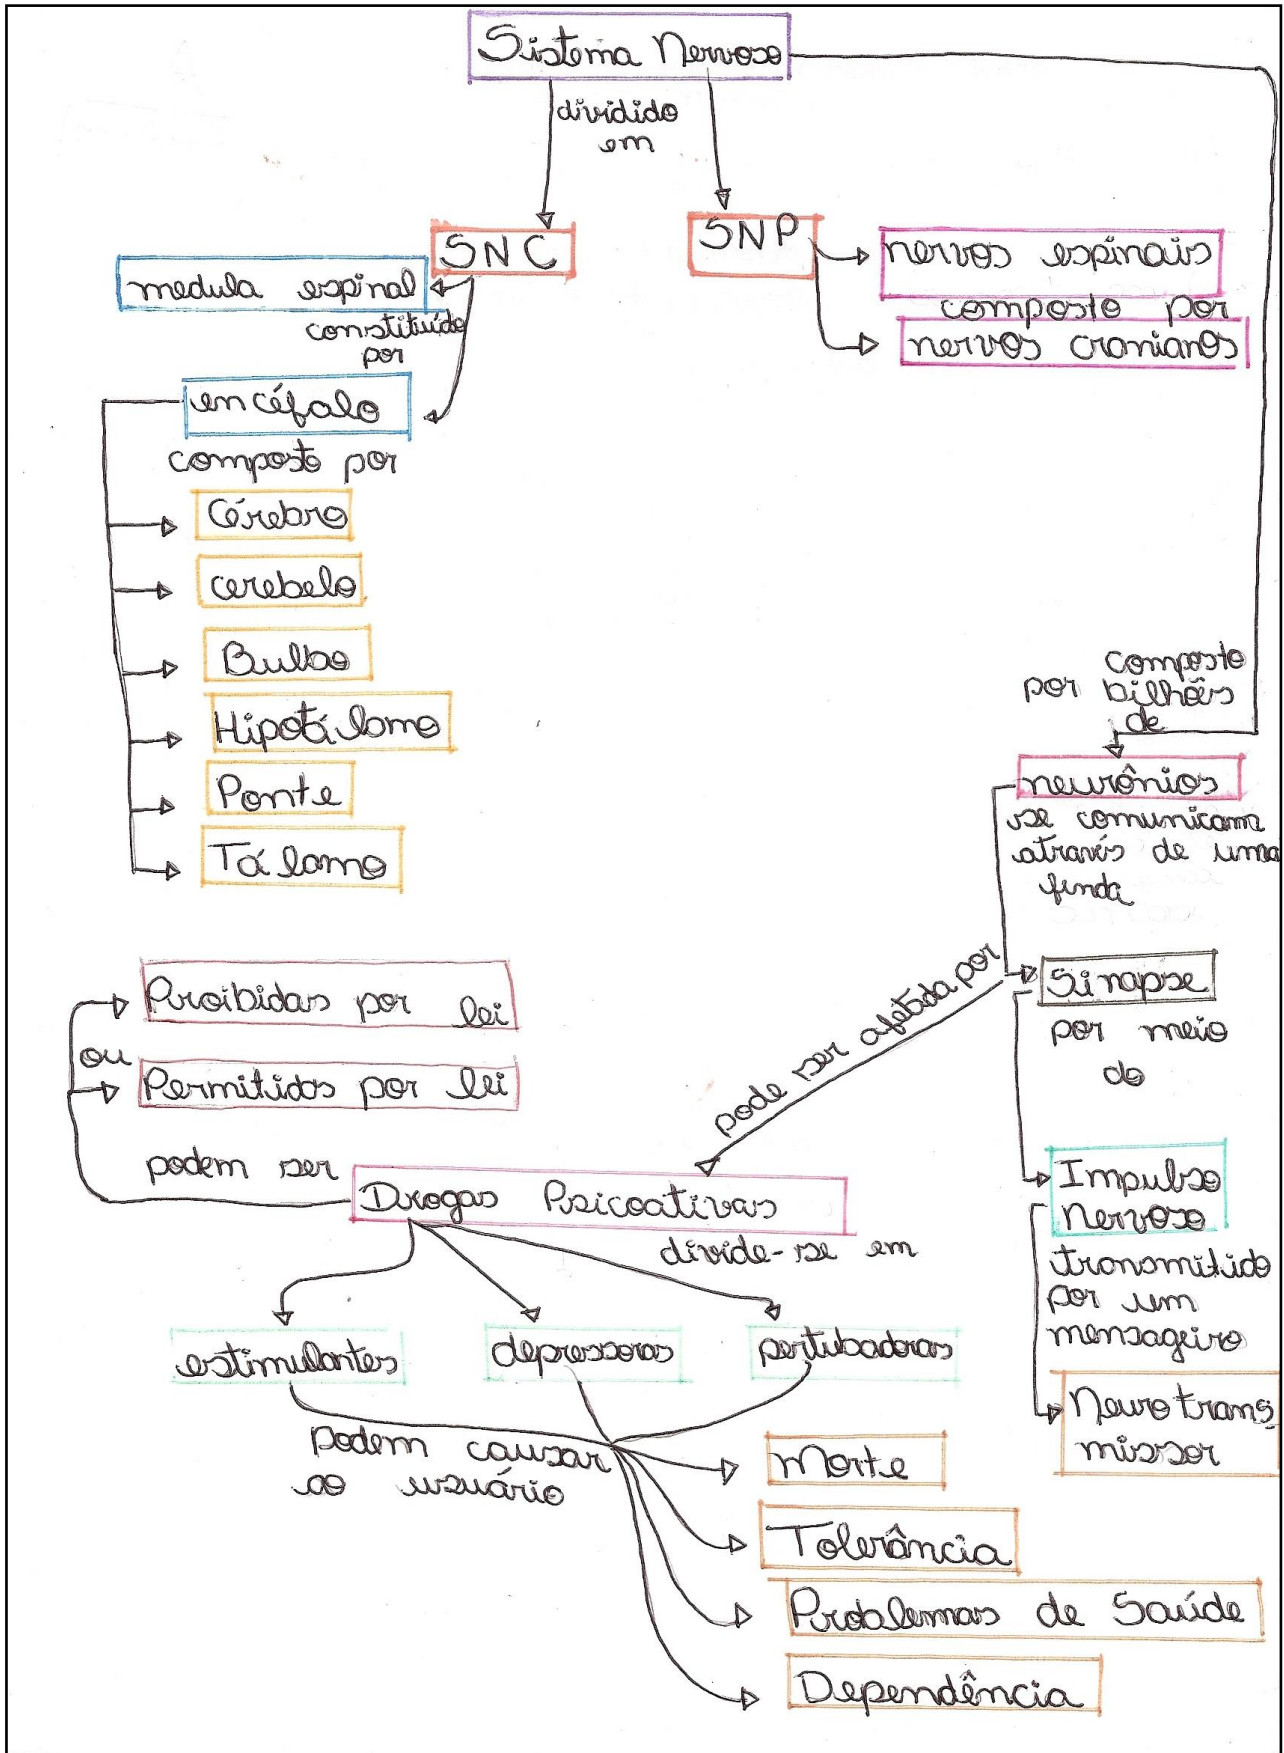 Sistema Nervoso
dividido
em
SNC
SNP
nervos espinais
composto por
nervos cranianos
medula espinal
constituído
por
encéfalo
composto por
Cérebro
cerebelo
Bulbo
Hipotálamo
Ponte
Tálamo
composto
por bilhões
de
neurônios
se comunicam
através de uma
fenda
Sinapse
por meio
do
Impulso
nervoso
transmitido
por um
mensageiro
Neurotrans
missor
pode ser afetada por
Proibidas por lei
ou
Permitidas por lei
podem ser
Drogas Psicoativas
divide-se em
estimulantes
depressoras
pertubadoras
Podem causar
ao usuário
Morte
Tolerância
Problemas de Saúde
Dependência